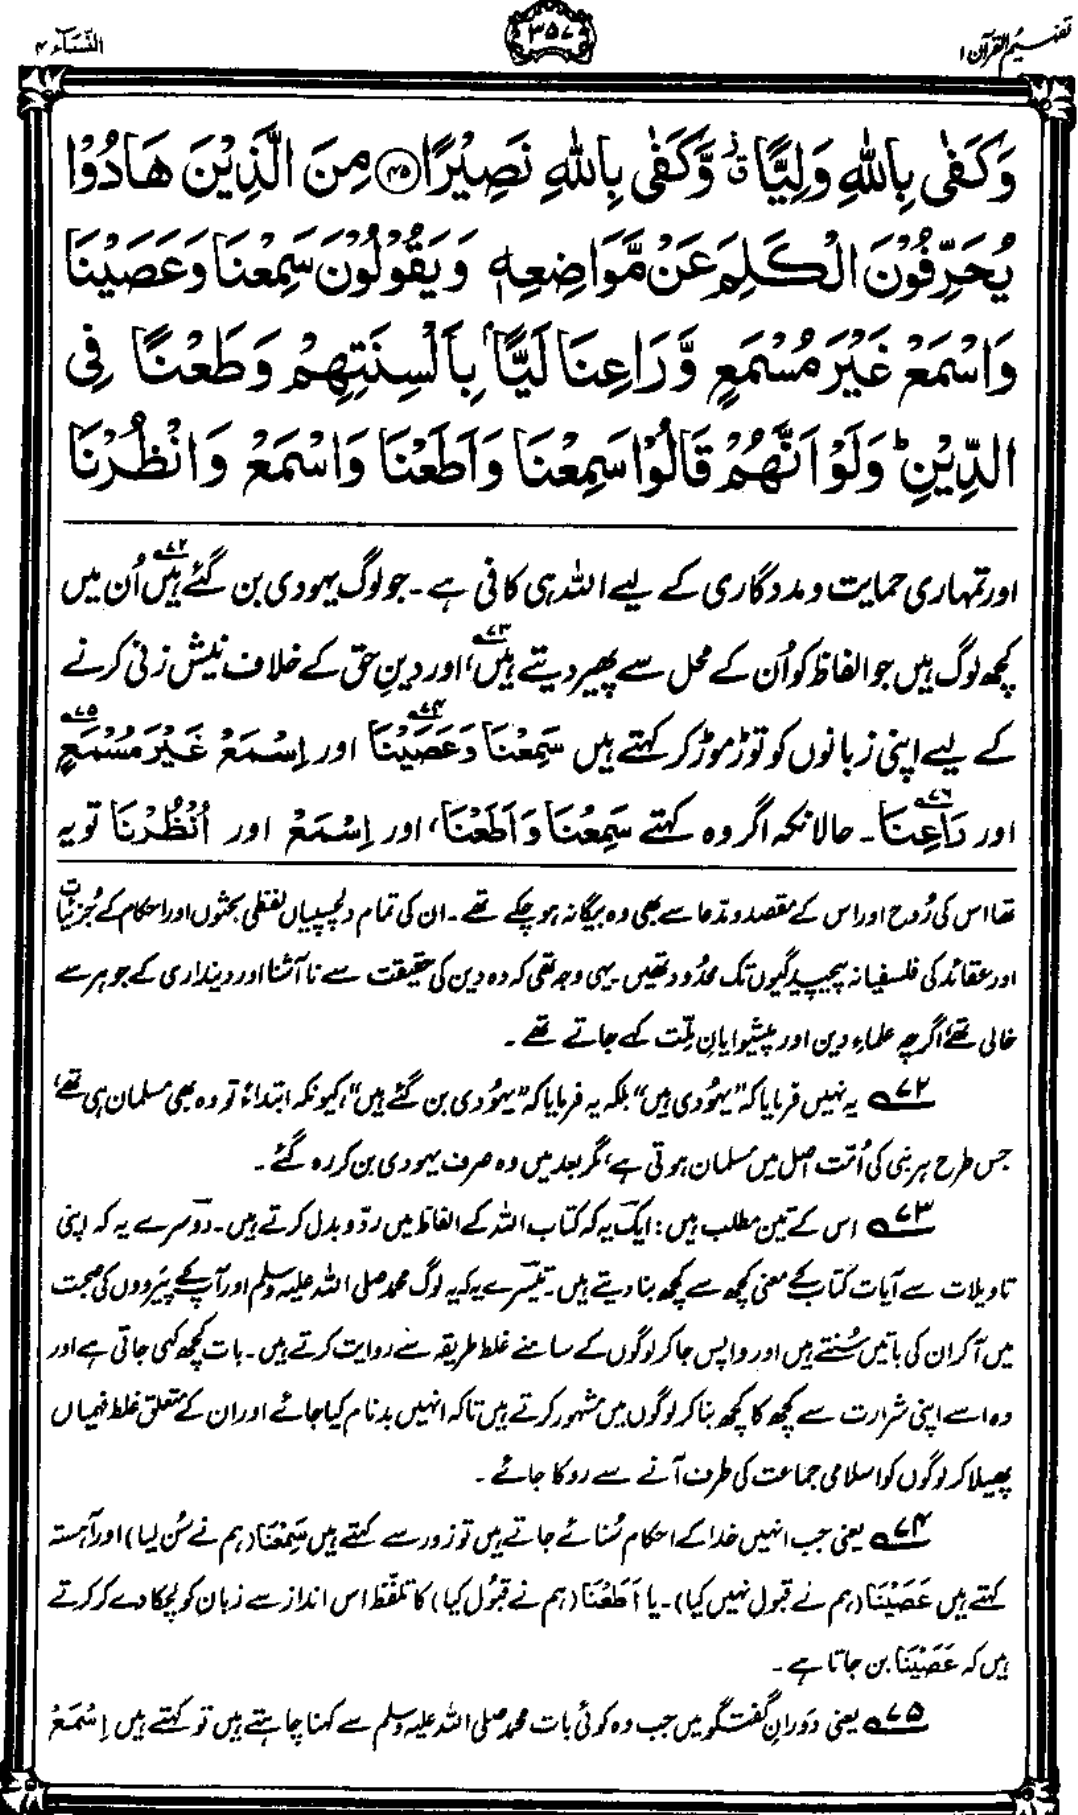 تفہیم القرآن ۱
۳۵۷
النّسَآء ۴
وَكَفٰى بِاللّٰهِ وَلِيًّا ۗ٘ وَّكَفٰى بِاللّٰهِ نَصِيْرًا ﴿۴۵﴾ مِنَ الَّذِيْنَ هَادُوْا
يُحَرِّفُوْنَ الْكَلِمَ عَنْ مَّوَاضِعِهٖ وَيَقُوْلُوْنَ سَمِعْنَا وَعَصَيْنَا
وَاسْمَعْ غَيْرَ مُسْمَعٍ وَّرَاعِنَا لَيًّاۢ بِاَلْسِنَتِهِمْ وَطَعْنًا فِى
الدِّيْنِ ؕ وَلَوْ اَنَّهُمْ قَالُوْا سَمِعْنَا وَاَطَعْنَا وَاسْمَعْ وَانْظُرْنَا
اور تمہاری حمایت و مددگاری کے لیے اللہ ہی کافی ہے۔ جو لوگ یہودی بن گئے ہیں۷۲ اُن میں
کچھ لوگ ہیں جو الفاظ کو اُن کے محل سے پھیر دیتے ہیں۷۳، اور دینِ حق کے خلاف نیش زنی کرنے
کے لیے اپنی زبانوں کو توڑ موڑ کر کہتے ہیں سَمِعْنَا وَعَصَيْنَا۷۴ اور اِسْمَعْ غَيْرَ مُسْمَعٍ۷۵
اور رَاعِنَا۷۶۔ حالانکہ اگر وہ کہتے سَمِعْنَا وَاَطَعْنَا، اور اِسْمَعْ اور اُنْظُرْنَا تو یہ
تھا اس کی رُوح اور اس کے مقصد و مدّعا سے بھی وہ بیگانہ ہو چکے تھے۔ ان کی تمام دلچسپیاں لفظی بحثوں اور احکام کے جُزئیات
اور عقائد کی فلسفیانہ پیچیدگیوں تک محدُود تھیں۔ یہی وجہ تھی کہ وہ دین کی حقیقت سے ناآشنا اور دینداری کے جوہر سے
خالی تھے اگرچہ علماءِ دین اور پیشوایانِ ملّت کہے جاتے تھے۔
۷۲ یہ نہیں فرمایا کہ ”یہُودی ہیں“ بلکہ یہ فرمایا کہ ”یہُودی بن گئے ہیں“، کیونکہ ابتداءً تو وہ بھی مسلمان ہی تھے،
جس طرح ہر نبی کی اُمّت اصل میں مسلمان ہوتی ہے، مگر بعد میں وہ صرف یہودی بن کر رہ گئے۔
۷۳ اس کے تین مطلب ہیں: ایک یہ کہ کتاب اللہ کے الفاظ میں ردّ و بدل کرتے ہیں۔ دوسرے یہ کہ اپنی
تاویلات سے آیاتِ کتاب کے معنی کچھ سے کچھ بنا دیتے ہیں۔ تیسرے یہ کہ یہ لوگ محمد صلی اللہ علیہ وسلم اور آپ کے پَیرووں کی صحبت
میں آ کر ان کی باتیں سُنتے ہیں اور واپس جا کر لوگوں کے سامنے غلط طریقہ سے روایت کرتے ہیں۔ بات کچھ کہی جاتی ہے اور
وہ اسے اپنی شرارت سے کچھ کا کچھ بنا کر لوگوں میں مشہور کرتے ہیں تاکہ انہیں بدنام کیا جائے اور ان کے متعلق غلط فہمیاں
پھیلا کر لوگوں کو اسلامی جماعت کی طرف آنے سے روکا جائے۔
۷۴ یعنی جب انہیں خدا کے احکام سُنائے جاتے ہیں تو زور سے کہتے ہیں سَمِعْنَا (ہم نے سُن لیا) اور آہستہ
کہتے ہیں عَصَيْنَا (ہم نے قبول نہیں کیا)۔ یا اَطَعْنَا (ہم نے قبُول کیا) کا تلفّظ اس انداز سے زبان کو لچکا دے کر کرتے
ہیں کہ عَصَيْنَا بن جاتا ہے۔
۷۵ یعنی دَورانِ گفتگو میں جب وہ کوئی بات محمد صلی اللہ علیہ وسلم سے کہنا چاہتے ہیں تو کہتے ہیں اِسْمَعْ